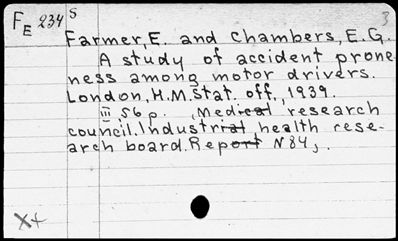 FE 234 S
3
Farmer, E. and Chambers, E.G.
A study of accident prone-
ness among motor drivers.
London, H.M.Stat. off., 1939.
iii 56 p. , Medical research
council. Industrial health rese-
arch board. Report N 84, .
X+